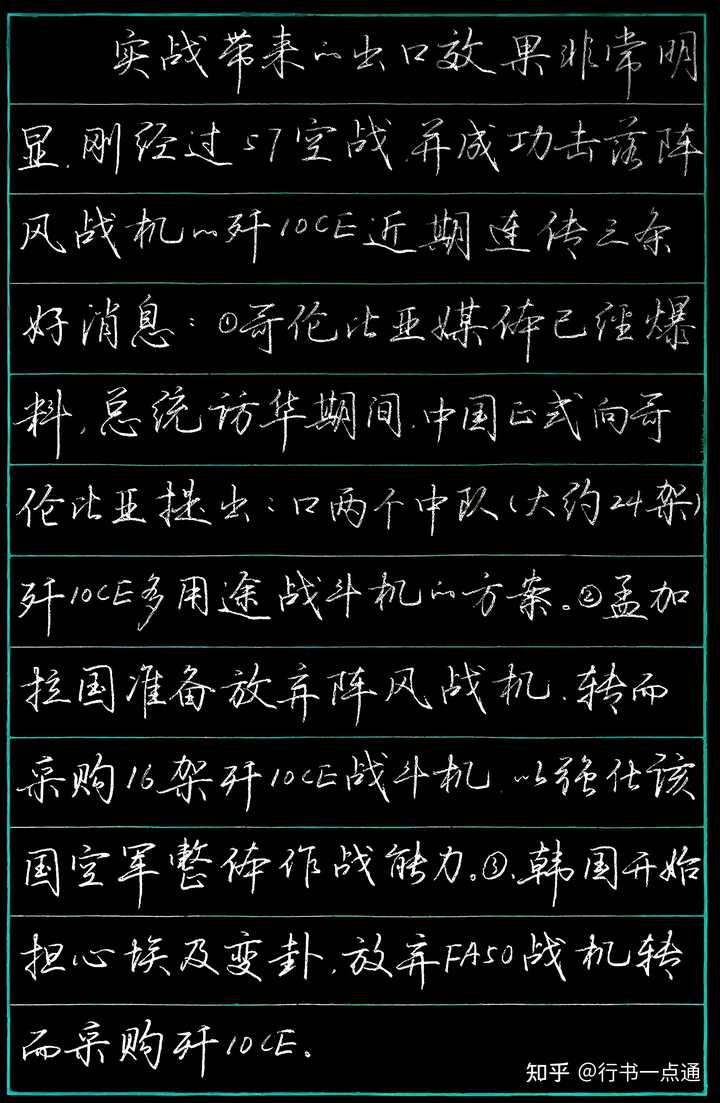 实战带来的出口效果非常明
显.刚经过57空战.并成功击落阵
风战机的歼10CE近期连传三条
好消息:①哥伦比亚媒体已经爆
料,总统访华期间.中国正式向哥
伦比亚提出:口两个中队(大约24架)
歼10CE多用途战斗机的方案。②孟加
拉国准备放弃阵风战机.转而
采购16架歼10CE战斗机.以强化该
国空军整体作战能力。③.韩国开始
担心埃及变卦.放弃FA50战机转
而采购歼10CE.
知乎 @行书一点通